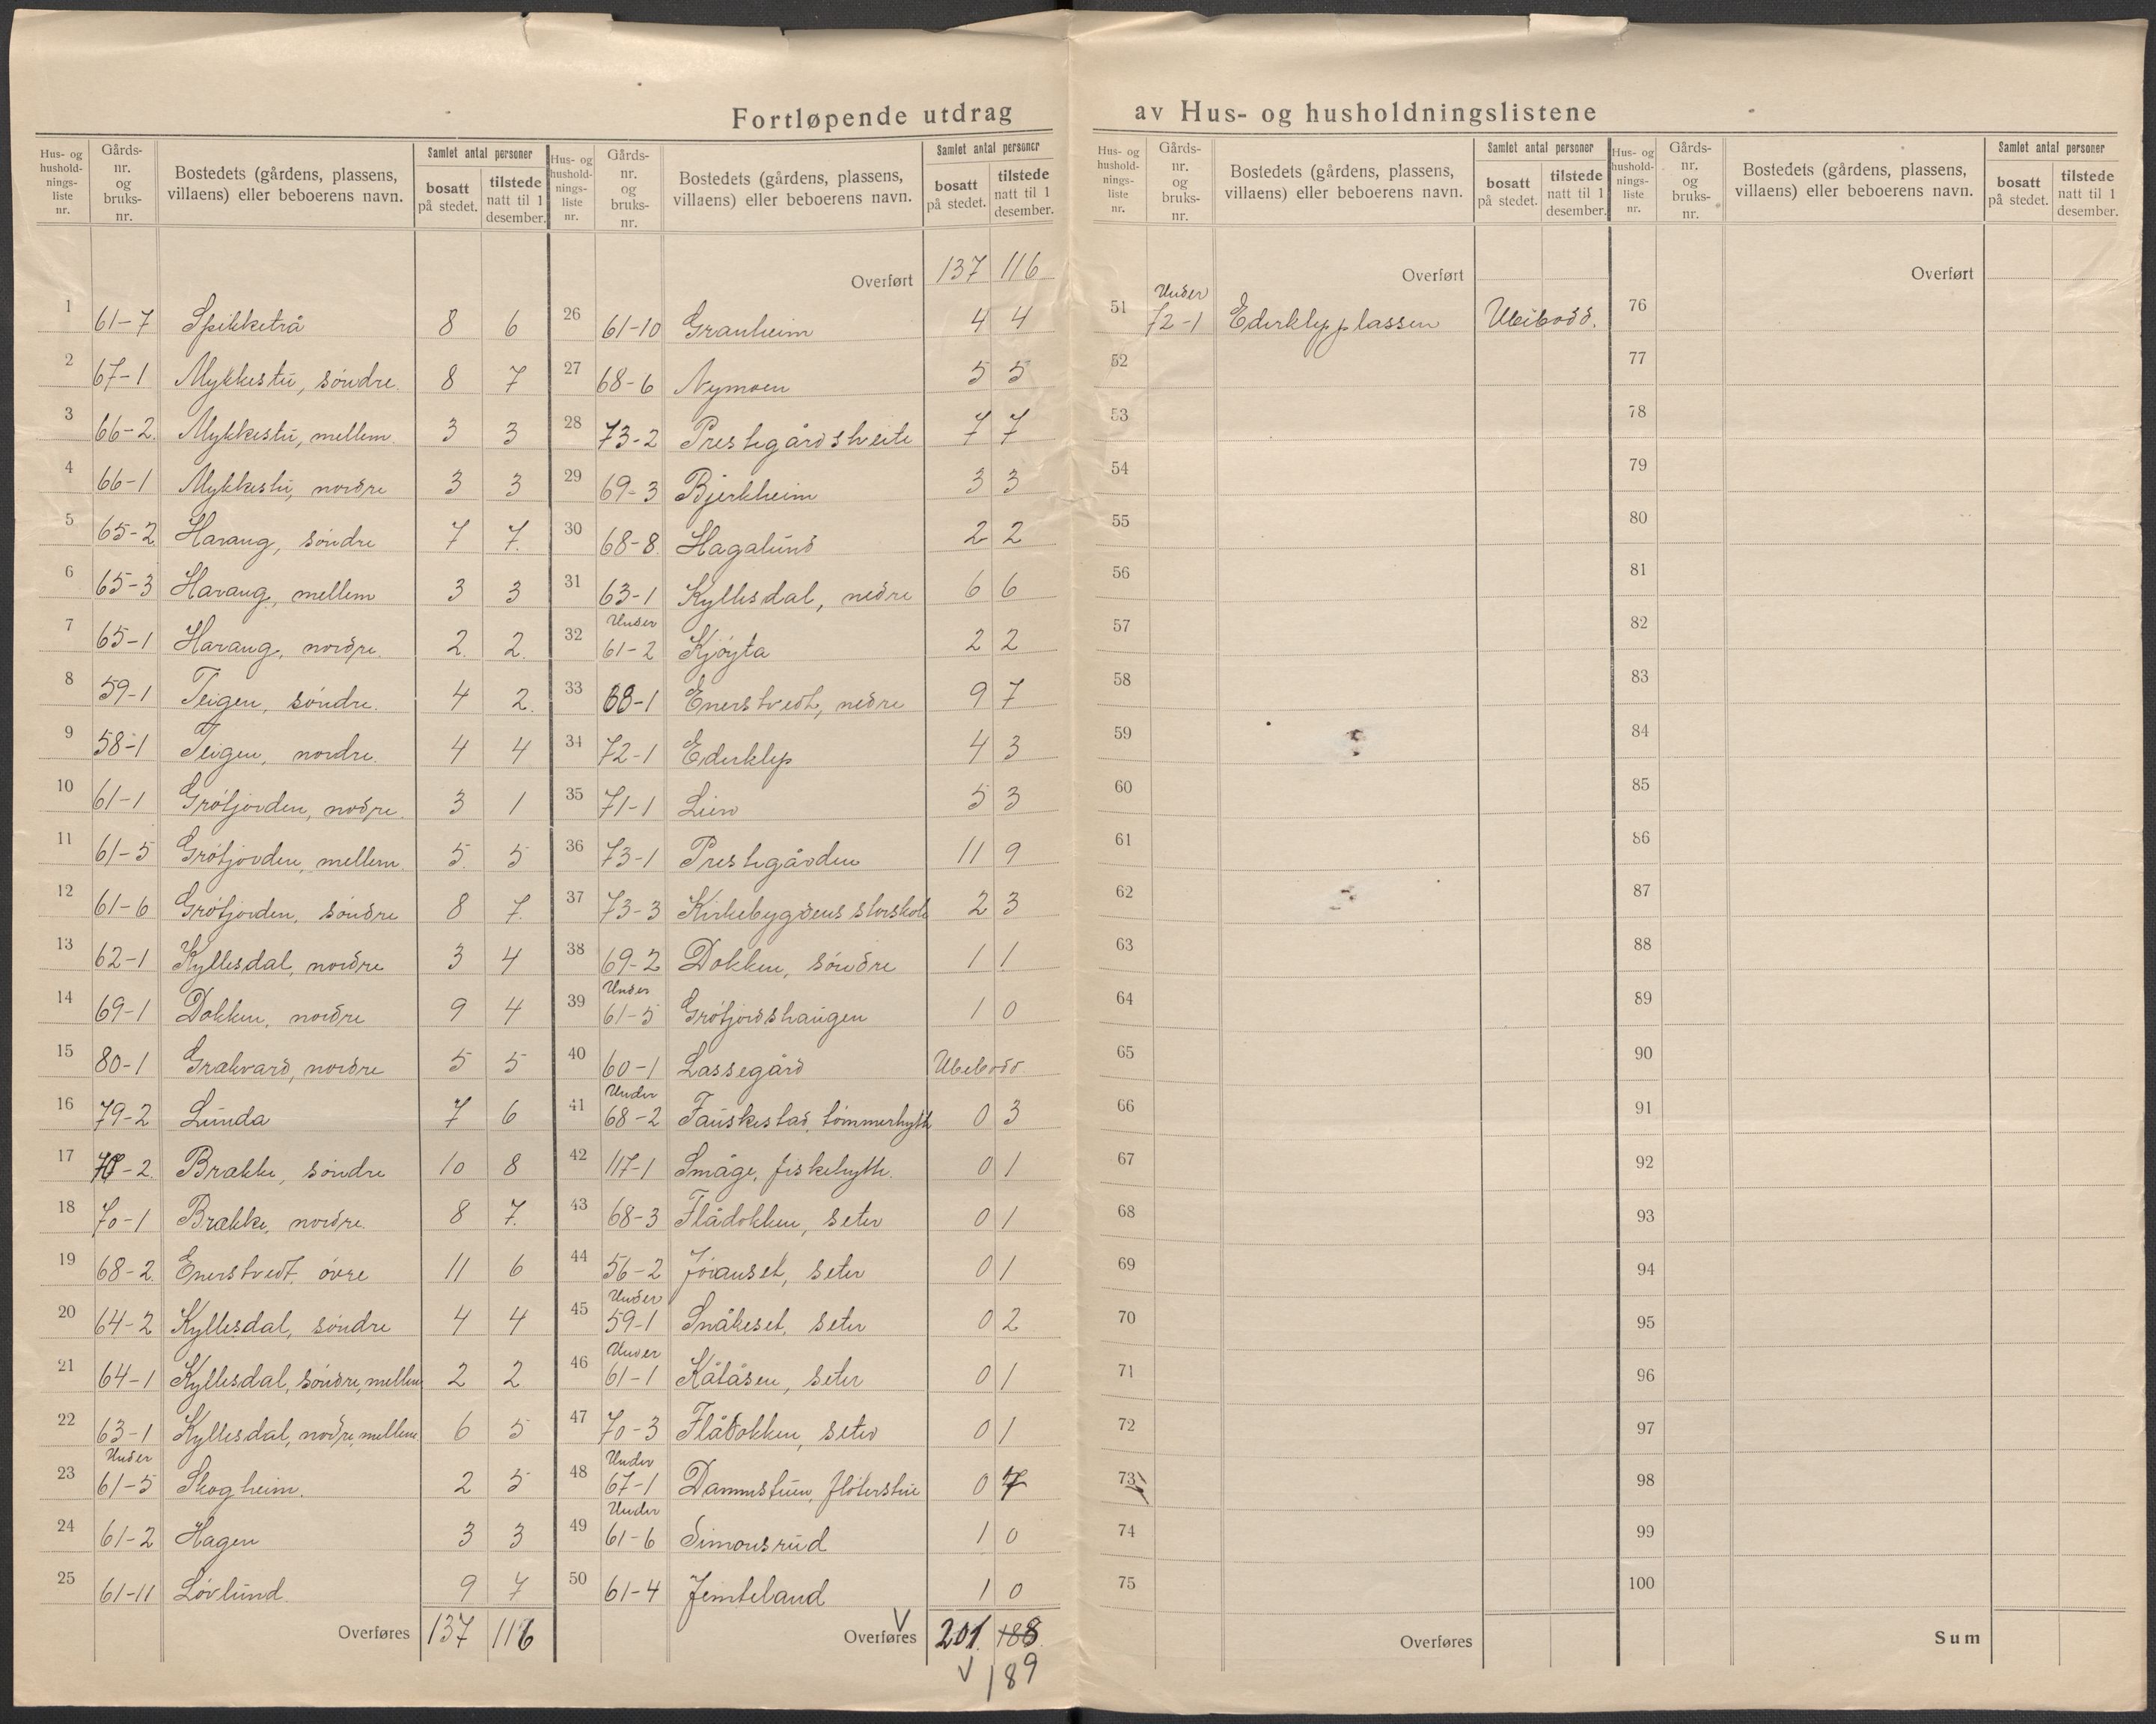 Fortløpende utdrag av Hus- og husholdningslistene
Hus- og hushold-nings-liste nr. Gårds-nr. og bruks-nr. Bostedets (gårdens, plassens, villaens) eller beboerens navn. Samlet antal personer bosatt på stedet. tilstede natt til 1 desember.
1 61-7 Spikketrå 8 6
2 67-1 Mykkestu, søndre. 8 7
3 66-2. Mykkestu, mellem. 3 3
4 66-1 Mykkestu, nordre 3 3
5 65-2 Harang, søndre 7 7.
6 65-3 Harang, mellem 3 3
7 65-1 Harang, nordre. 2. 2.
8 59-1 Teigen, søndre. 4 2.
9 58-1 Teigen, nordre. 4 4
10 61-1 Grøtjorden, nordre. 3 1
11 61-5 Grøtjorden, mellem. 5. 5
12 61-6 Grøtjorden, søndre 8 7.
13 62-1 Kyllesdal, nordre 3 4
14 69-1 Dokken, nordre 9 4
15 80-1 Grakvard, nordre 5 5
16 79-2 Lunda 7 6
17 70-2. Brække, søndre 10 8
18 70-1 Brække, nordre. 8 7.
19 68-2. Enerstvedt, øvre 11 6
20 64-2 Kyllesdal, søndre 4 4
21 64-1 Kyllesdal, søndre, mellem 2 2
22 63-1 Kyllesdal, nordre, mellem 6 5
23 Under 61-5 Skogheim. 2 5
24 61-2 Hagen 3 3
25 61-11 Løvlund. 9 7
Overføres 137 116
Hus- og hushold-nings-liste nr. Gårds-nr. og bruks-nr. Bostedets (gårdens, plassens, villaens) eller beboerens navn. Samlet antal personer bosatt på stedet. tilstede natt til 1 desember.
Overført 137 116
26 61-10 Granheim 4 4
27 68-6 Nymoen 5 5
28 73-2 Prestegårdshveite 7 7
29 69-3 Bjerkheim 3 3
30 68-8. Hagalund 2 2
31 63-1 Kyllesdal, nedre 6 6
32 Under 61-2 Kjøyta 2 2
33 68-1 Enerstvedt, nedre 9 7
34 72-1 Ederklep 4 3
35 71-1 Lien 5 3
36 73-1 Prestegården 11 9
37 73-3 Kirkebygdens storskole 2 3
38 69-2 Dokken, søndre 1 1
39 Under 61-5 Grøtjordshaugen 1 0
40 60-1 Lassegård Ubebodd.
41 Under 68-2 Fauskestad, tømmerhytte 0 3
42 117-1 Småge, fiskehytte. 0 1
43 68-3 Flådokken, seter 0 1
44 56-2 Jøranset, seter 0 1
45 Under 59-1 Snåkeset, seter 0 2
46 Under 61-1 Kåtåsen, seter 0 1
47 70-3 Flådokken, seter 0 1
48 Under 67-1 Dammstuen, fløterstue 0 7
49 Under 61-6 Simonsrud 1 0
50 61-4 Jemteland 1 0
Overføres 201. 188.
189
Hus- og hushold-nings-liste nr. Gårds-nr. og bruks-nr. Bostedets (gårdens, plassens, villaens) eller beboerens navn. Samlet antal personer bosatt på stedet. tilstede natt til 1 desember.
Overført
51 Under 72-1 Ederklepplassen Ubebodd.
52
53
54
55
56
57
58
59
60
61
62
63
64
65
66
67
68
69
70
71
72
73
74
75
Overføres
Hus- og hushold-nings-liste nr. Gårds-nr. og bruks-nr. Bostedets (gårdens, plassens, villaens) eller beboerens navn. Samlet antal personer bosatt på stedet. tilstede natt til 1 desember.
Overført
76
77
78
79
80
81
82
83
84
85
86
87
88
89
90
91
92
93
94
95
96
97
98
99
100
Sum